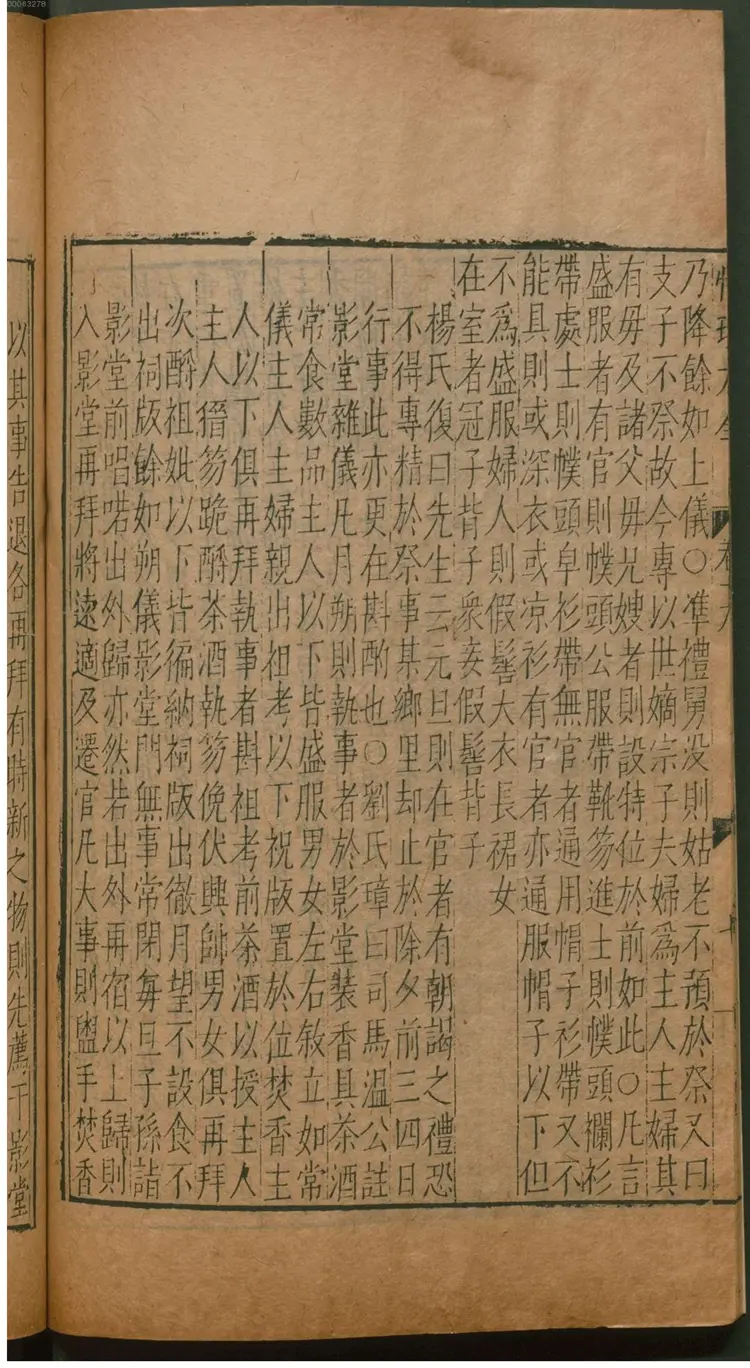 性理大全 卷十九
乃降餘如上儀○準禮舅没則姑老不預於祭又曰
支子不祭故今專以世嫡宗子夫婦爲主人主婦其
有母及諸父母兄嫂者則設特位於前如此○凡言
盛服者有官則幞頭公服帶靴笏進士則幞頭襴衫
帶處士則幞頭皁衫帶無官者通用帽子衫帶又不
能具則或深衣或凉衫有官者亦通服帽子以下但
不爲盛服婦人則假髻大衣長裙女
在室者冠子背子衆妾假髻背子
楊氏復曰先生云元旦則在官者有朝謁之禮恐
不得專精於祭事某鄉里却止於除夕前三四日
行事此亦更在斟酌也○劉氏璋曰司馬温公註
影堂雜儀凡月朔則執事者於影堂装香具茶酒
常食數品主人以下皆盛服男女左右敘立如常
儀主人主婦親出祖考以下祝版置於位焚香主
人以下俱再拜執事者斟祖考前茶酒以授主人
主人搢笏跪酹茶酒執笏俛伏興帥男女俱再拜
次酹祖妣以下皆徧納祠版出徹月望不設食不
出祠版餘如朔儀影堂門無事常閉每旦子孫詣
影堂前唱喏出外歸亦然若出外再宿以上歸則
入影堂再拜將遠適及遷官凡大事則盥手焚香
以其事告退各再拜有時新之物則先薦于影堂